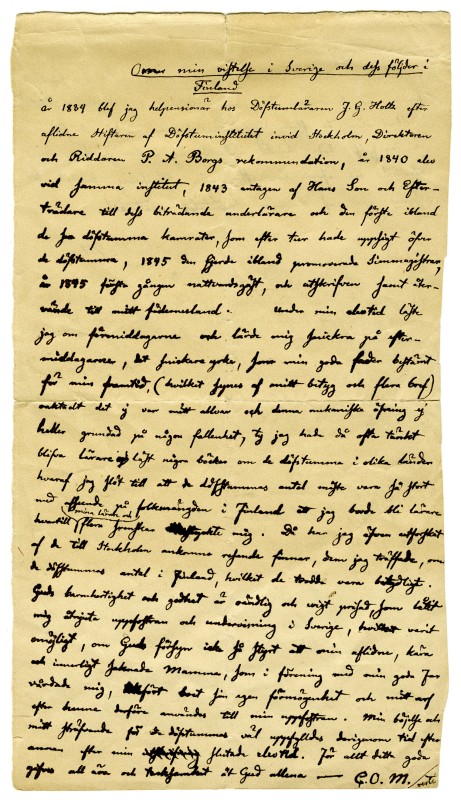 Om min vistelse i Sverige och dess följder i
Finland
år 1839 blef jag helpensionär hos Döfstumläraren J. G. Holte efter
aflidne Stiftaren af Döfstuminstitutet invid Stockholm, Direktoren
och Riddaren P. A. Borgs rekommendation, år 1840 elev
vid samma institut, 1843 antagen af Hans Son och Efter-
trädare till dess biträdande underlärare och den förste ibland
de döfstumma kamrater, som efter tur hade uppsigt öfver
de döfstumma, 1845 den fjerde ibland promoverade Simmagistrar,
år 1845 förste gången nattvardsgäst, och utskrifven samt åter-
vände till mitt fädernesland. Under min elevtid läste
jag om förmiddagarne och lärde mig snickra på efter-
middagarne, det snickareyrke, som min gode fader bestämt
för min framtid, (hvilket synes af mitt betyg och flera bref)
oaktadt det ej var mitt allvar och denna mekaniska öfning ej
heller grundad på någon fallenhet, ty jag hade då ofta tänkt
blifva lärare och läst några böcker om de döfstumma i olika länder
hvaraf jag slöt till att de döfstummas antal måste vara så stort
med afseende på folkmängden i Finland att jag borde bli lärare
hvartill flera mig. Då har jag äfven utforskat
af de till Stockholm ankomne resande finnar, dem jag träffade, om
de döfstummas antal i Finland, hvilket de trodde vara betydligt.
Guds barmhertighet och godhet är oändlig och evigt prisad, som låtit
mig åtnjuta uppfostran och undervisning i Sverige, hvilket varit
omöjligt, om Gud icke så styrt att min aflidne, kära
och innerligt saknade Mamma, som i förening med min gode Far
vårdade mig, sin egen förmögenhet och mitt arf
efter henne derföre användes till min uppfostran. Min böjelse och
mitt sträfvande för de döfstummas väl uppfylldes derigenom tid efter
annan efter min slutade elevtid. För allt detta goda
gifves all ära och tacksamhet åt Gud allena — C. O. M.